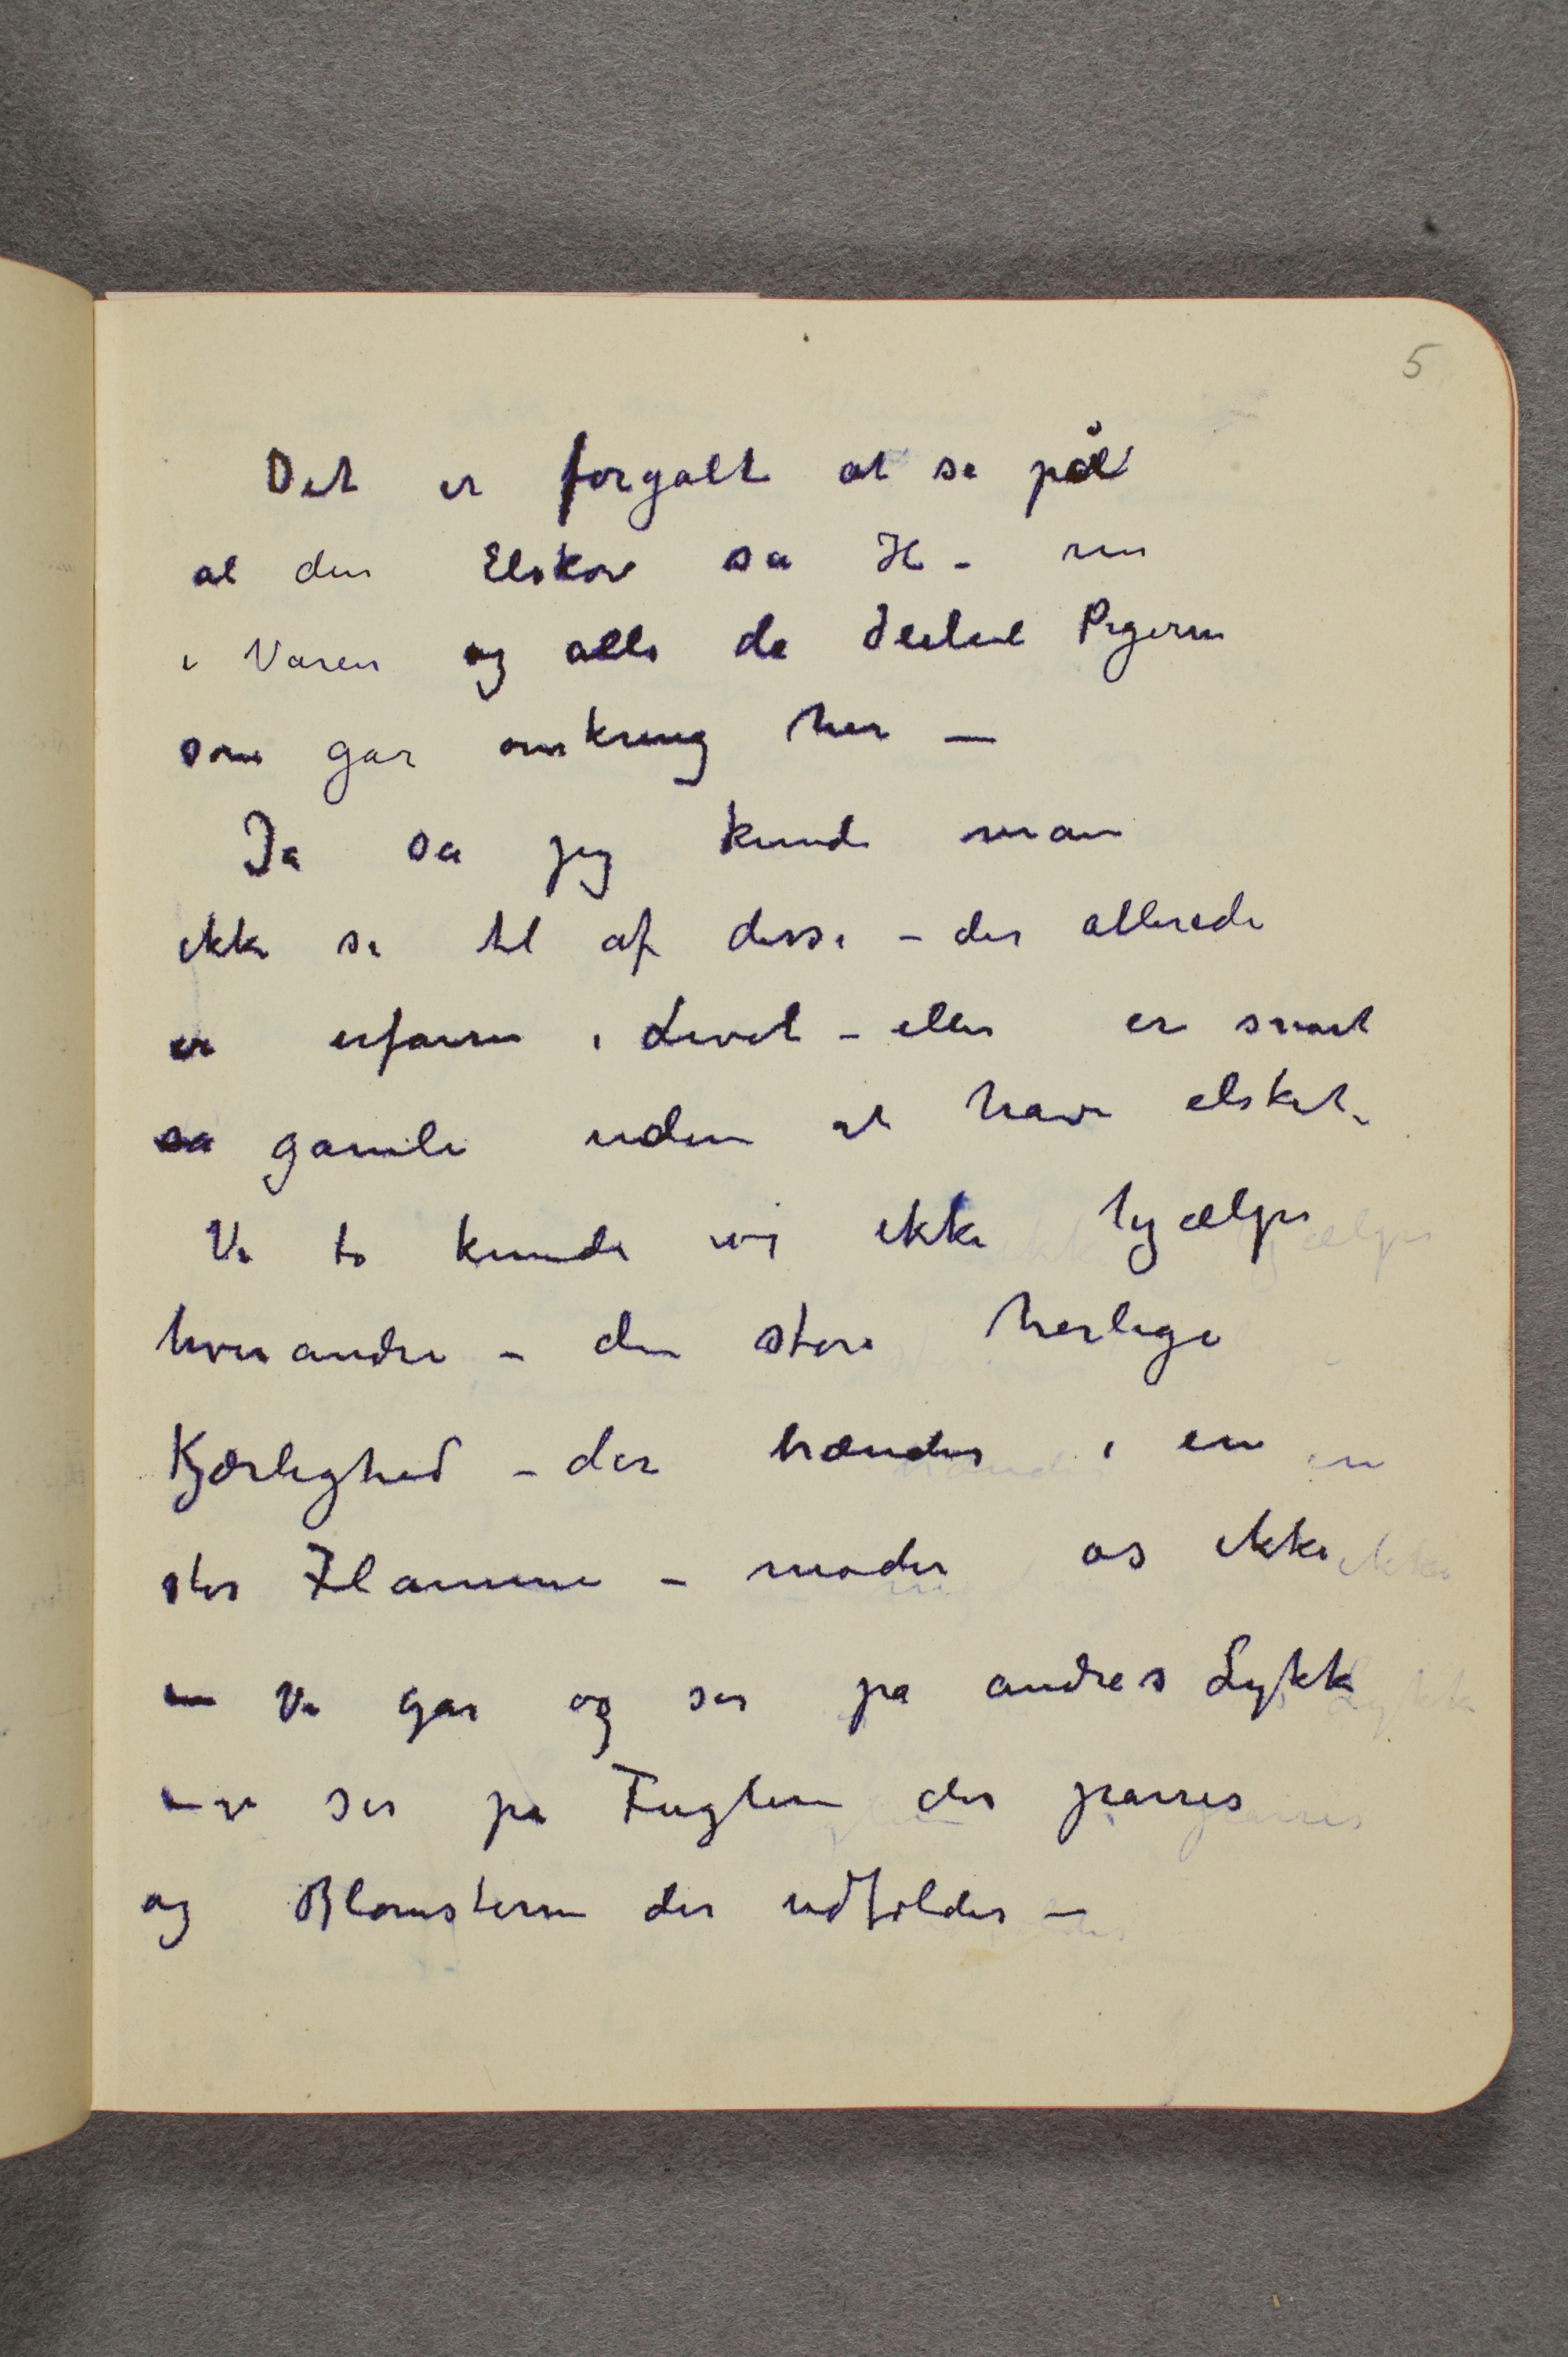 5
Det er forgalt at se på
al den Elskov sa H – nu
i Varen og alle de deilie Pigerne
som gar omkring her —
Ja sa jeg kunde man
ikke se til af disse – der allerede
er erfarne i Livet – eller er snart
sa gamle uden at have elsket.
Vi to kunde vi ikke hjælpe
hverandre – den store herlige
Kjærlighed – der brænder i en
stor Flamme – møder os ikke
– Vi gar og ser pa andres Lykke
– vi ser pa Fuglene der parres
og Blomsterne der udfolder –